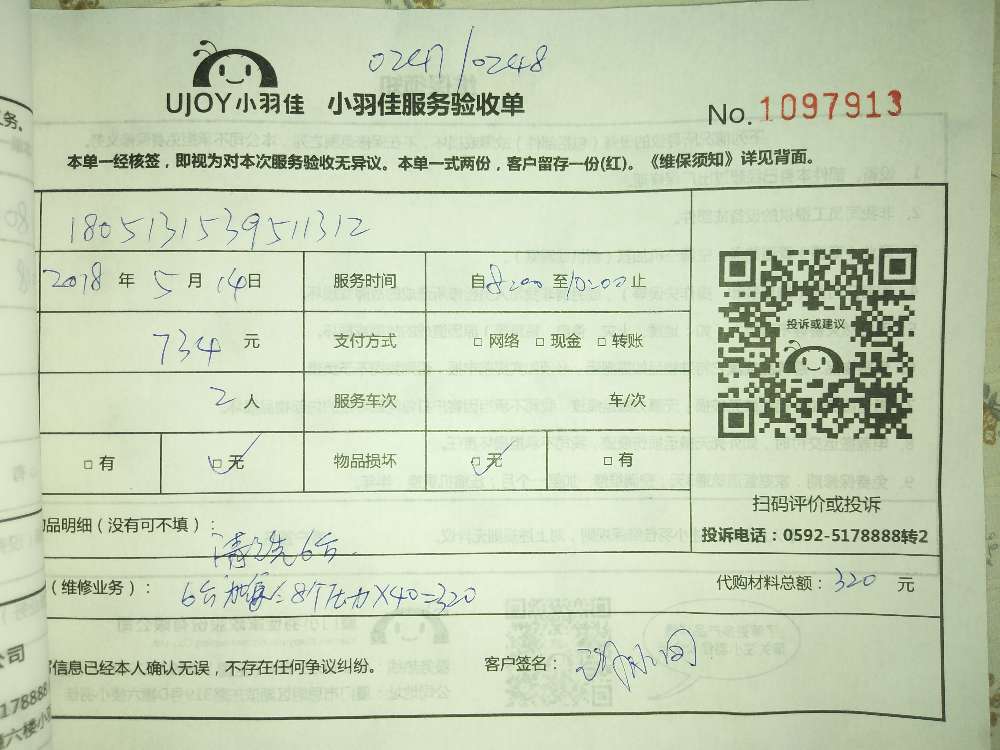 0247/0248
UJOY小羽佳 小羽佳服务验收单
No.1097913
本单一经核签，即视为对本次服务验收无异议。本单一式两份，客户留存一份(红)。《维保须知》详见背面。
务。
1805131539511312
2018 年 5 月 14日 服务时间 自8:00至10:00止
734 元 支付方式 □ 网络 □ 现金 □ 转账
投诉或建议
2 人 服务车次 车/次
□ 有 □ 无 物品损坏 □ 无 □ 有
扫码评价或投诉
投诉电话：0592-5178888转2
品明细（没有可不填）：
清洗6台
（维修业务）： 6台 8个压力×40=320
代购材料总额：320 元
信息已经本人确认无误，不存在任何争议纠纷。 客户签名：
公司
178888
六楼小